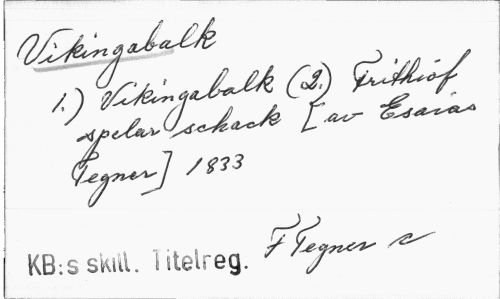 Vikingabalk
1.) Vikingabalk (2.) Frithiof
spelar schack [av Esaias
Tegner] 1833
F Tegner
KB:s skill. Titelreg.